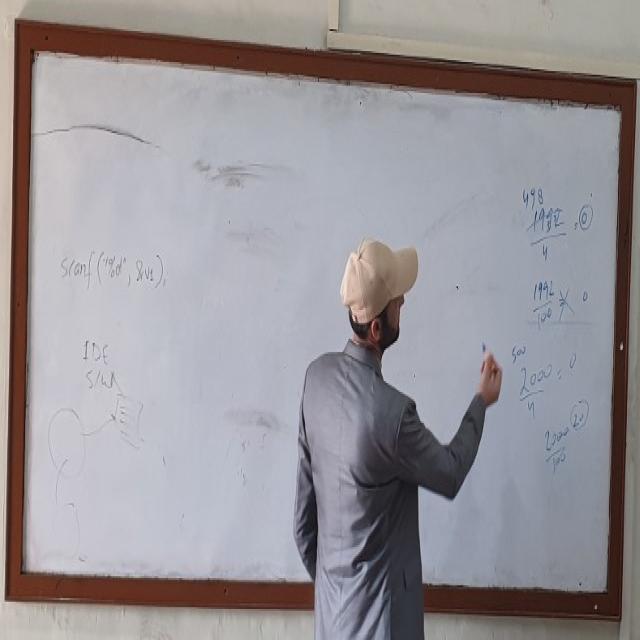 scanf("%d", &v1);
IDE
S/W
498
1992
4
0
1992
100
0
500
2000 = 0
4
2000
100
20